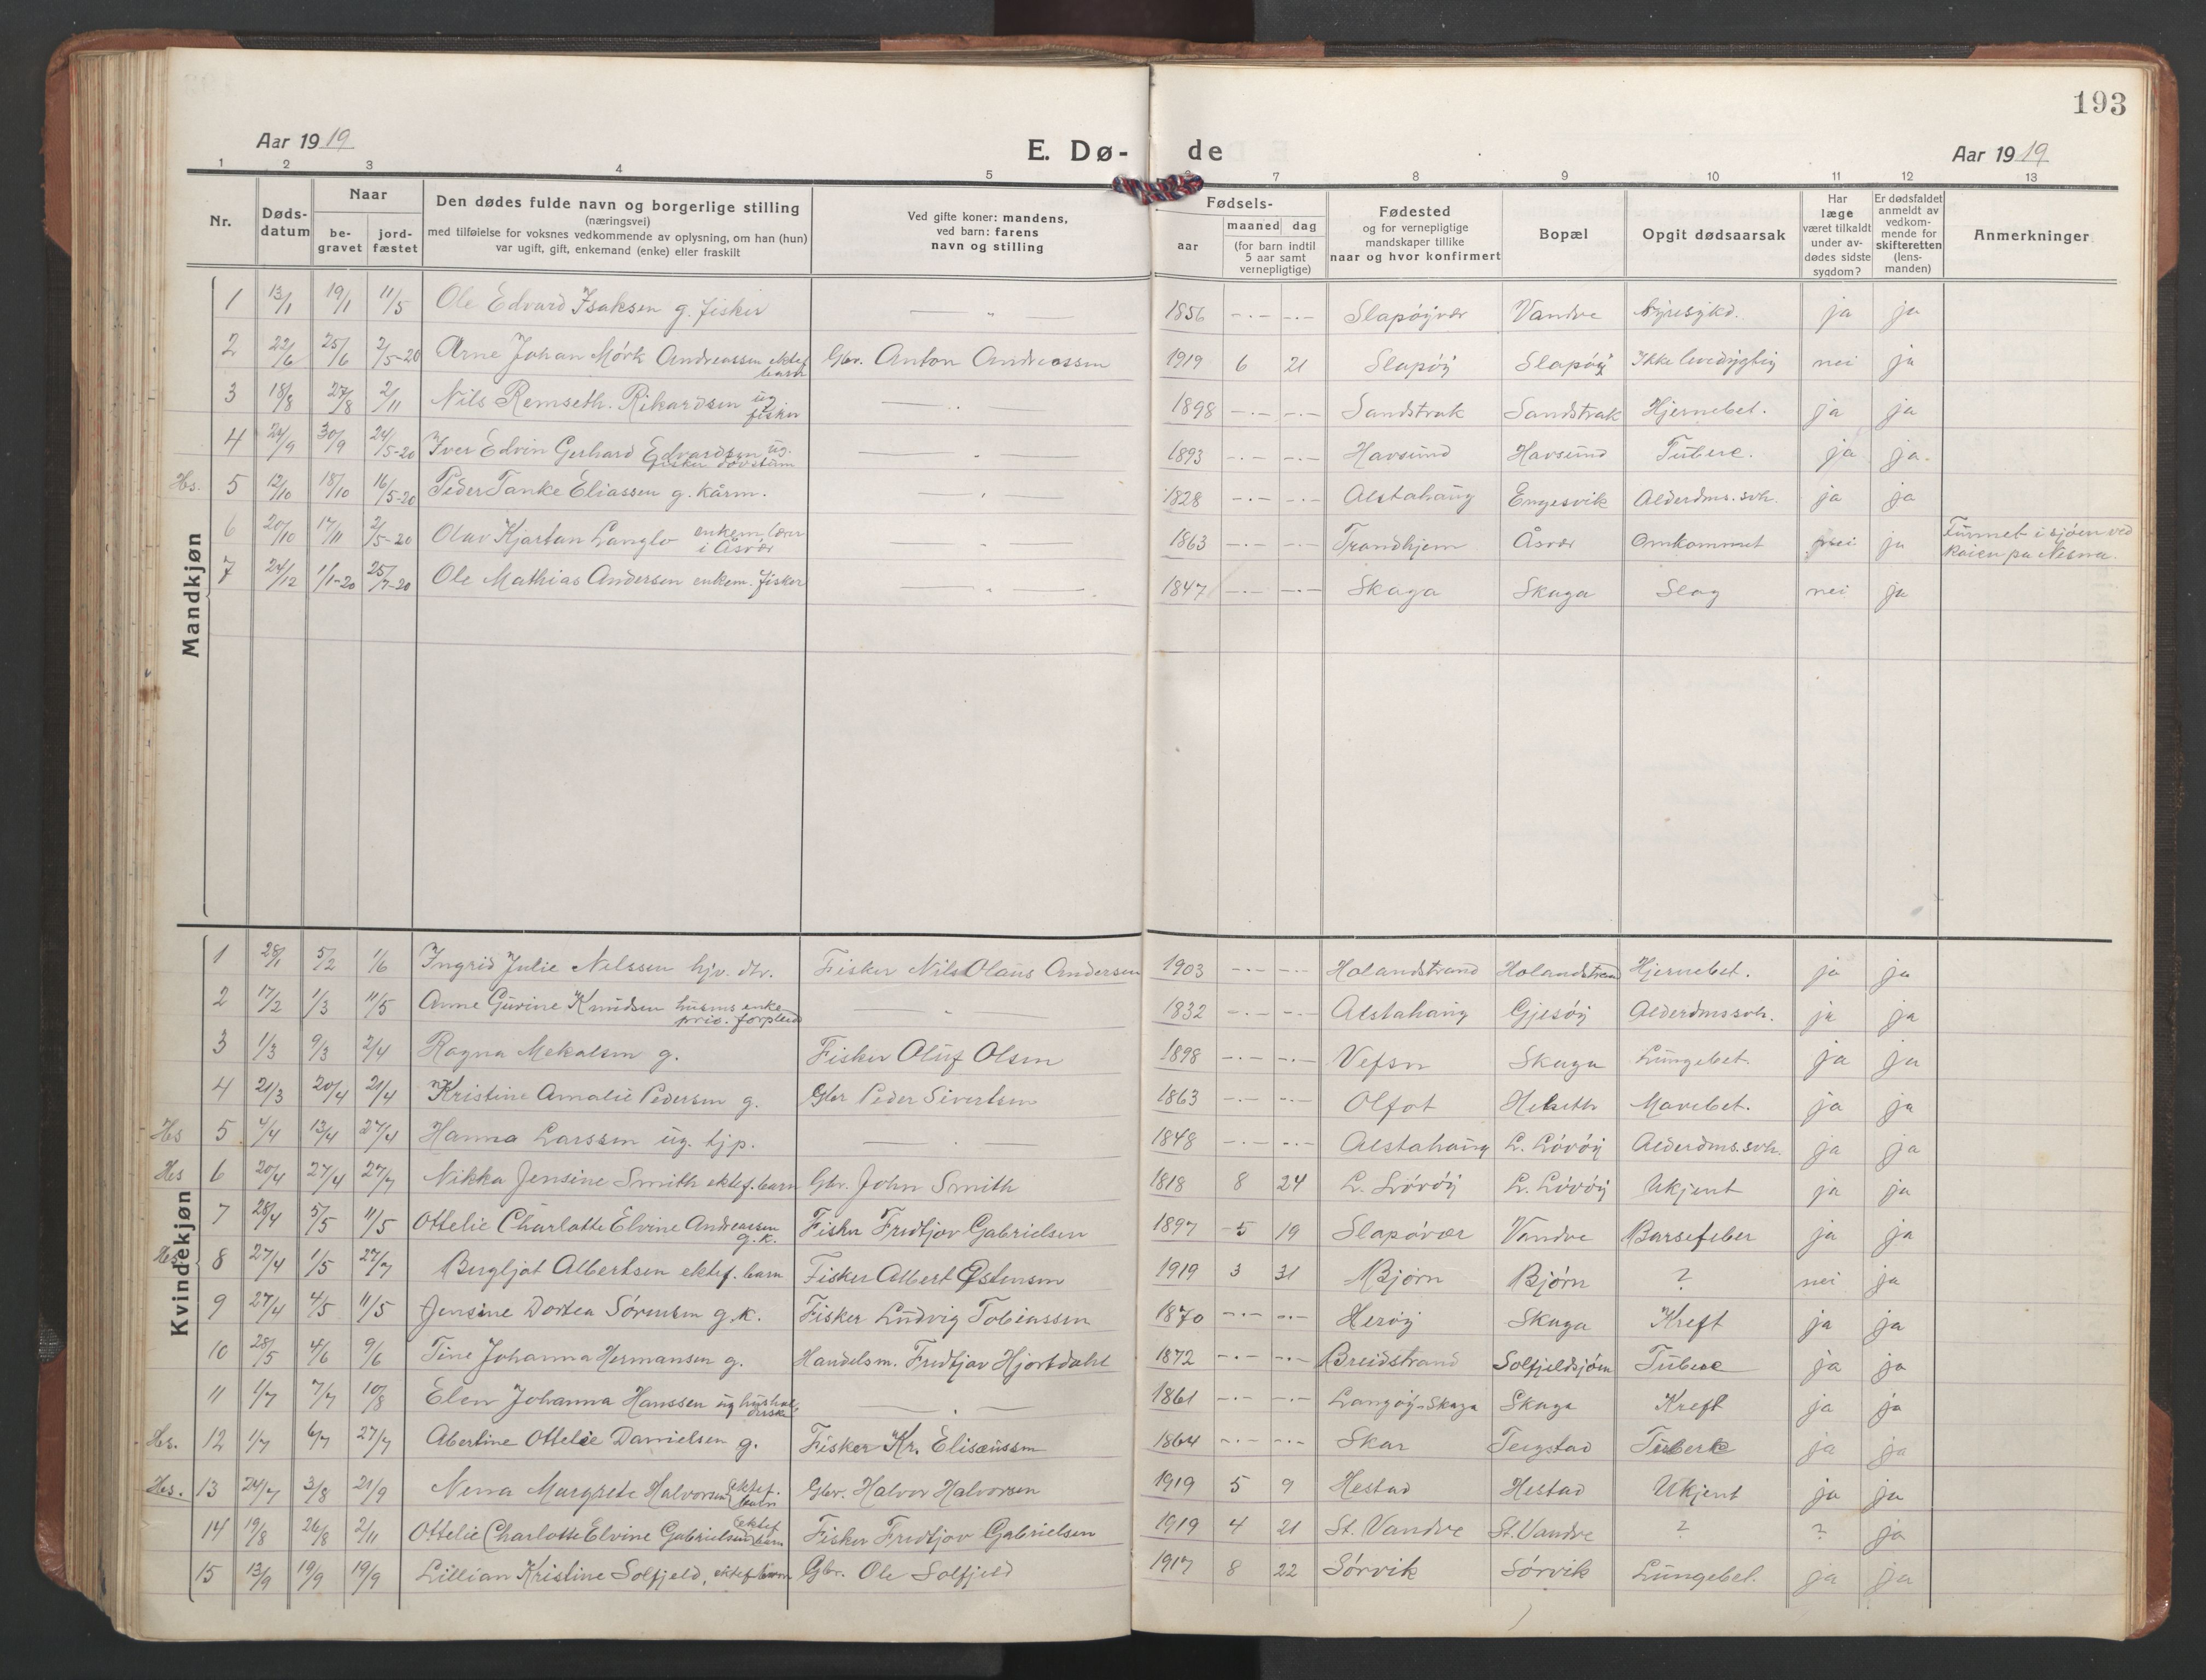 193
Aar 1919
E. Dø-de
Aar 1919
1 2 3 4 5 7 8 9 10 11 12 13
Nr.
Døds-datum
Naar
be-gravet
jord-fæstet
Den dødes fulde navn og borgerlige stilling
(næringsvei)
med tilføielse for voksnes vedkommende av oplysning, om han (hun)
var ugift, gift, enkemand (enke) eller fraskilt
Ved gifte koner: mandens,
ved barn: farens
navn og stilling
Fødsels-
aar
maaned dag
(for barn indtil
5 aar samt
vernepligtige)
Fødested
og for vernepligtige
mandskaper tillike
naar og hvor konfirmert
Bopæl
Opgit dødsaarsak
Har
læge
været tilkaldt
under av-
dødes sidste
sygdom?
Er dødsfaldet
anmeldt av
vedkom-
mende for
skifteretten
(lens-
manden)
Anmerkninger
Mandkjøn
1 13/1 19/1 11/5 Ole Edvard Isaksen g. fisker — " — 1856 -.- -.- Slapøyvær Vandve ja ja
2 22/6 25/6 2/5-20 Arne Johan Mørk Andreassen ektef. barn Gbr. Anton Andreassen 1919 6 21 Slapøy Slapøy Ikke levedygtig nei ja
3 18/8 27/8 2/11 Nils Remseth Rikardsen ug. fisker — " — 1898 -.- -.- Sandstrak Sandstrak Hjernebet. ja ja
4 24/9 30/9 24/5-20 Iver Edvin Gerhard Edvardsen ug. fisker døvstum — " — 1893 -.- -.- Havsund Havsund Tuberc. ja ja
Hs. 5 12/10 18/10 16/5-20 Peder Tanke Eliassen g. kårm. — " — 1828 -.- -.- Alstahaug Engesvik Alderdms.svh. ja ja
6 20/10 17/11 2/5-20 Olav Kjartan Langlo enkem. lærer i Åsvær — " — 1863 -.- -.- Trondhjem Åsvær Omkommet nei ja Funnet i sjøen ved kaien på Nesna.
7 24/12 1/1-20 25/7-20 Ole Mathias Andersen enkem. fisker — " — 1847 -.- -.- Skaga Skaga Slag nei ja
Kvindekjøn
1 28/1 5/2 1/6 Ingrid Julie Nilssen hjv. dtr. Fisker Nils Olaus Andersen 1903 -.- -.- Holandstrand Holandstrand Hjernebet. ja ja
2 17/2 1/3 11/5 Anne Gurine Knudsen husms.enke priv. forpleid — " — 1832 -.- -.- Alstahaug Gjesøy Alderdmssvh. ja ja
3 1/3 9/3 2/4 Ragna Mekalsen g. Fisker Oluf Olsen 1898 -.- -.- Vefsn Skaga Lungebet. ja ja
4 21/3 20/4 21/4 Kristine Amalie Pedersen g. Gbr Peder Sivertsen 1863 -.- -.- Olfot Helseth Mavebet. ja ja
Hs 5 4/4 13/4 27/4 Hanna Larssen ug. tjp. — " — 1848 -.- -.- Alstahaug L. Løvøy Alderdms.svh. ja ja
Hes 6 20/4 27/4 27/7 Nikka Jensine Smith ektef. barn Gbr. John Smith 1818 8 24 L. Løvøy L. Løvøy Ukjent ja ja
7 28/4 5/5 11/5 Ottelie Charlotte Elvine Andreassen g.k. Fisker Fredtjov Gabrielsen 1897 5 19 Slapøvær Vandve Barsefeber ja ja
Hes. 8 27/4 1/5 27/7 Bergljot Albertsen ektef. barn Fisker Albert Østensen 1919 3 31 Bjørn Bjørn ? nei ja
9 27/4 4/5 11/5 Jensine Dortea Sørensen g.k. Fisker Ludvig Tobiassen 1870 -.- -.- Herøy Skaga Kreft ja ja
10 28/5 4/6 9/6 Tine Johanna Hermansen g. Handelsm. Fredtjov Hjortdahl 1872 -.- -.- Breidstrand Solfjeldsjøen Tuberc ja ja
11 1/7 7/7 10/8 Elen Johanna Hanssen ug hushol-derske — " — 1861 -.- -.- Langøy-Skaga Skaga Kreft ja ja
Hes. 12 1/7 6/7 27/7 Abertine Ottelie Danielsen g. Fisker Kr. Eliseussen 1864 -.- -.- Skar Teigstad Tuberk ja ja
Hes. 13 24/7 3/8 21/9 Nenna Margrete Halvorsen ektef. barn Gbr. Halvor Halvorsen 1919 5 9 Hestad Hestad Ukjent ja ja
14 19/8 26/8 2/11 Ottelie Charlotte Elvine Gabrielsen ektef. barn Fisker Fredtjov Gabrielsen 1919 4 21 St. Vandve St. Vandve ? ? ja
15 13/9 19/9 19/9 Lillian Kristine Solfjeld, ektef. barn Gbr. Ole Solfjeld 1917 8 22 Sørvik Sørvik Lungebet. ja ja